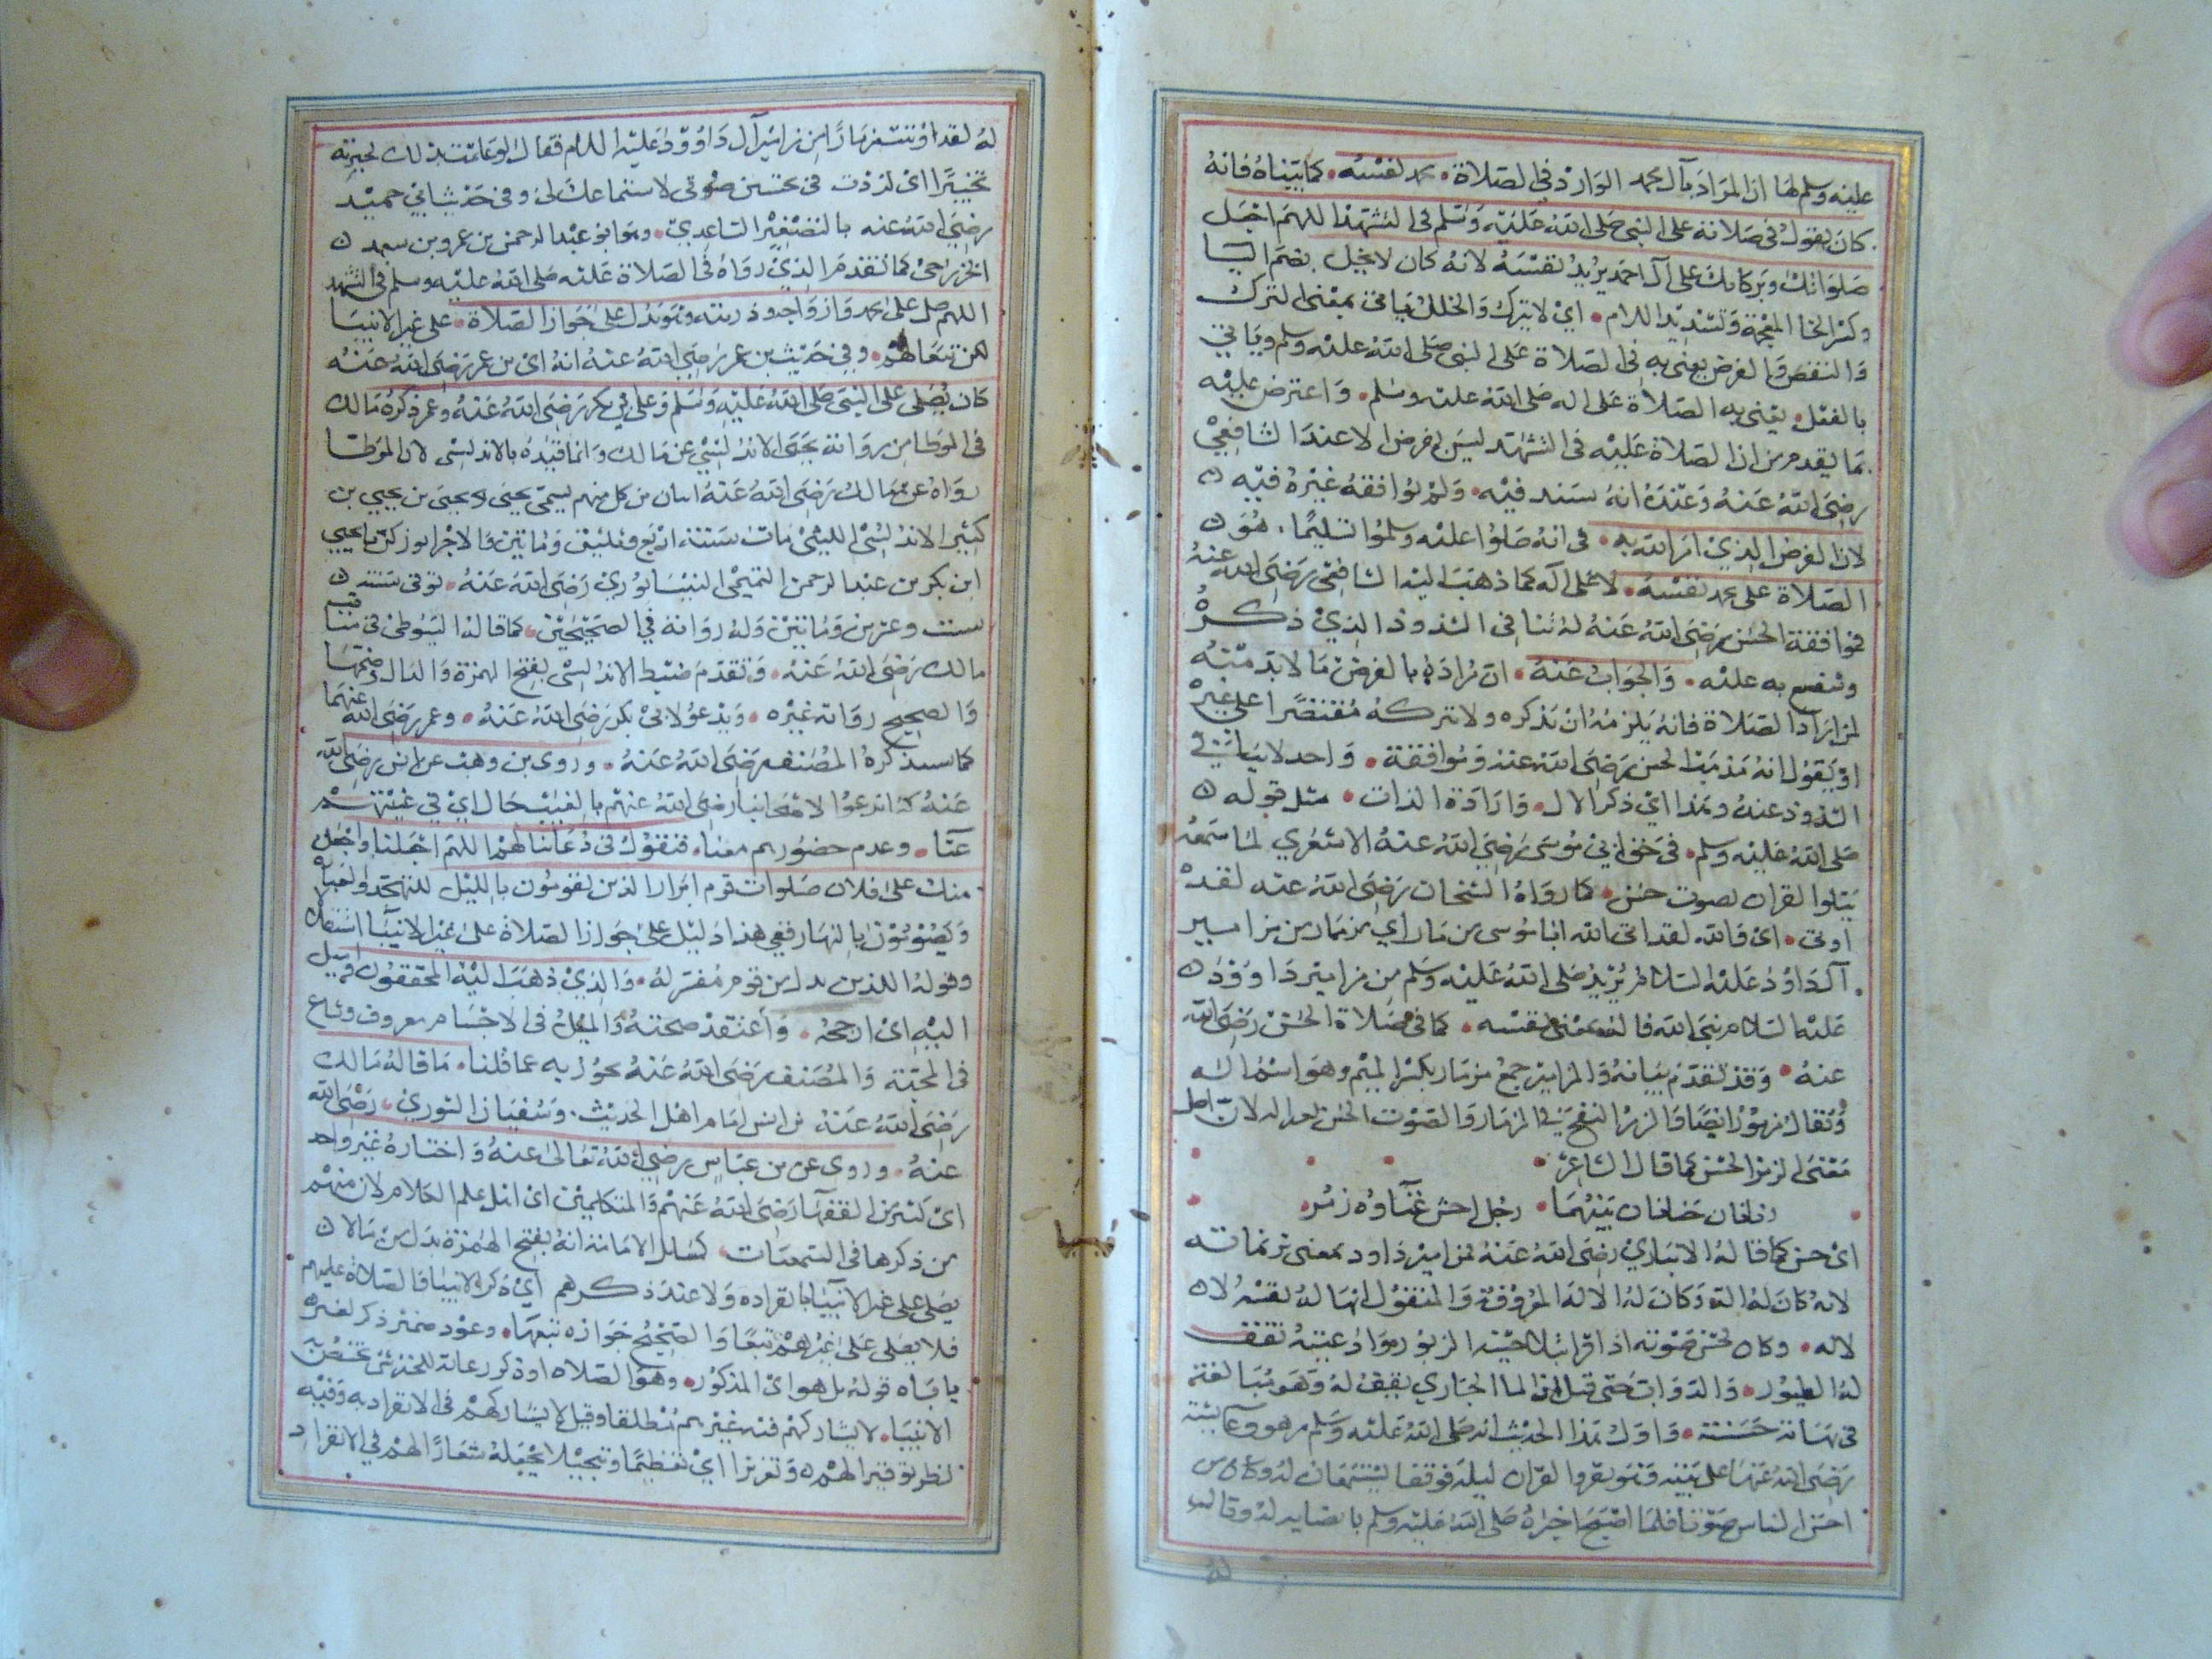 عليه وسلم لها ان المراد بآل محمد الوارد في الصلاة محمد نفسه كما بيناه فانه
كان يقول في صلاته على النبي صلى الله عليه وسلم في التشهد اللهم اجعل
صلواتك وبركاتك على آل احمد يريد نفسه لانه كان لا يخل بضم اليا
وكسر الخا المعجمة وتشديد اللام اي لا يترك والخلل ياتي بمعنى الترك
والنقص وبالفرض يعني به في الصلاة على النبي صلى الله عليه وسلم وياتي
بالفعل يعني به الصلاة على اله صلى الله عليه وسلم واعترض عليه
بما تقدم من ان الصلاة عليه في التشهد ليس بفرض الا عند الشافعي
رضي الله عنه وعنده انه سند فيه ولم يوافقه غيره فيه
لان الفرض الذي امر الله به في انه صلوا عليه وسلموا تسليما هو
الصلاة على محمد نفسه لا على آله كما ذهب اليه الشافعي رضي الله عنه
فوافقة الحسن رضي الله عنه له تنافي الشذوذ الذي ذكره
وشنع به عليه والجواب عنه ان مراده بالفرض ما لا بد منه
لمن اراد الصلاة فانه يلزمه ان يذكره ولا يتركه مقتصرا على غيره
او يقول انه مذهب الحسن رضي الله عنه وموافقة واحد لا ينافي
الشذوذ عنه وهذا اي ذكر الال وارادة الذات مثل قوله
صلى الله عليه وسلم في حق ابي موسى رضي الله عنه الاشعري لما سمعه
يتلوا القران بصوت حسن كما رواه الشيخان رضي الله عنه لقد
اوتي اي قاله لقد اتى الله ابا موسى مزمارا اي مزمار من مزامير
آل داود عليه السلام يريد صلى الله عليه وسلم من مزامير داوود
عليه السلام نبي الله فاله بمعنى نفسه كما في صلاة الحسن رضي الله
عنه وقد تقدم بيانه والمزامير جمع مزمار بكسر الميم وهو اسم الة
ويقال مزمور ايضا والزمر النفخ في المزمار والصوت الحسن
معنى الزمر الحسن كما قال الشاعر
دنانان حنانان بينهما رجل احش غناوه زمر
اي حسن كما قاله الانباري رضي الله عنه لمزامير داود بمعنى نزماته
لانه كان له الة وكان له الالة المعروفة والمنقول انها له نفسه لان
لاله وكان لحسن صوته اذا قرا بتلاحينه الزبور ومواعيته تقف
له الطيور والدواب حتى قيل ان الما الجاري يقف له وهو مبالغة
في نهاية حسنته واول هذا الحديث انه صلى الله عليه وسلم مر هو وعايشة
رضي الله عنها على بيته وهو يقروا القران ليلة فوقفا ليستمعان له وكان من
احسن الناس صوتا فلما اصبح اخبراه صلى الله عليه وسلم بانصاته له وقال
له
له لقد اوتيت مزمارا من مزامير آل داوود عليه اللام فقال لو علمت بذلك لحبرته
تحبيرا اي لزدت في تحسين صوتي لاستماعك لي وفي حديث ابي حميد
رضي الله عنه بالتصغير الساعدي وهو ابو عبد الرحمن بن عمرو بن سعد
الخزرجي كما تقدم الذي رواه في الصلاة عليه صلى الله عليه وسلم في التشهد
اللهم صل على محمد وازواجه وذريته وهو يدل على جواز الصلاة على غير الانبيا
لكن تبعا لهم وفي حديث بن عمر رضي الله عنه انه اي بن عمر رضي الله عنه
كان يصلي على النبي صلى الله عليه وسلم وعلى ابي بكر رضي الله عنه وعمر ذكره مالك
في الموطا من رواية يحيى الاندلسي عن مالك وانما قيده بالاندلسي لان الموطا
رواه عن مالك رضي الله عنه اثنان من كل منهم يسمى يحيى يحيى بن يحيى بن
كثير الاندلسي الليثي مات سنة اربع وثلثين ومايتين والاخر ابو زكريا يحيى
ابن بكر بن عبد الرحمن التميمي النيسابوري رضي الله عنه توفي سنة
ست وعشرين ومايتين وله رواية في الصحيحين كما قال السيوطي في مناقب
مالك رضي الله عنه وتقدم ضبط الاندلسي بفتح الهمزة والدال وضمها
والصحيح رواية غيره ويدعو لابي بكر رضي الله عنه وعمر رضي الله عنهما
كما سيذكره المصنف رضي الله عنه وروى بن وهب عن انس رضي الله
عنه كنا ندعوا لاصحابنا رضي الله عنهم بالغيب حال اي في غيبتهم
عنا وعدم حضورهم معنا فنقول في دعائنا لهم اللهم اجعلنا واجعل
منك على فلان صلوات قوم ابرار الذين يقومون بالليل للتهجد واحيا
ويصومون بالنهار ففي هذا دليل على جواز الصلاة على غير الانبيا استقلالا
وقوله الذين بدل من قوم مفسر له والذي ذهب اليه المحققون واميل
اليه اي ارجحه واعتقد صحته والميل في الاجسام معروف وشاع
في المحبة والمصنف رضي الله عنه تجوز به عما قلنا ما قاله مالك
رضي الله عنه بن انس امام اهل الحديث وسفيان الثوري رضي الله
عنه وروى عن بن عباس رضي الله تعالى عنه واختاره غير واحد
اي كثير من الفقهآ رضي الله عنهم والمتكلمين اي اهل علم الكلام لان منهم
من ذكرها في السمعيات كمسلة الامامة انه بفتح الهمزة بدل من ما لان
يصلي على غير الانبيا بانفراده ولا عند ذكرهم اي ذكر الانبيا فالصلاة عليهم
فلا يصلى على غيرهم تبعا والصحيح جوازه تبعها وعود ضمير ذكر لغيره
ياباه قوله بل هو اي المذكور وهو الصلاه او ذكر رعاية للخبر شي يختص
الانبيا لا يشاركهم فيه غيرهم مطلقا وقيل لا يشاركهم في الانفراد به وفيه
نظر توقيرا لهم وتعزيزا اي تعظيما وتبجيلا بجعله شعارا لهم في الانفراد